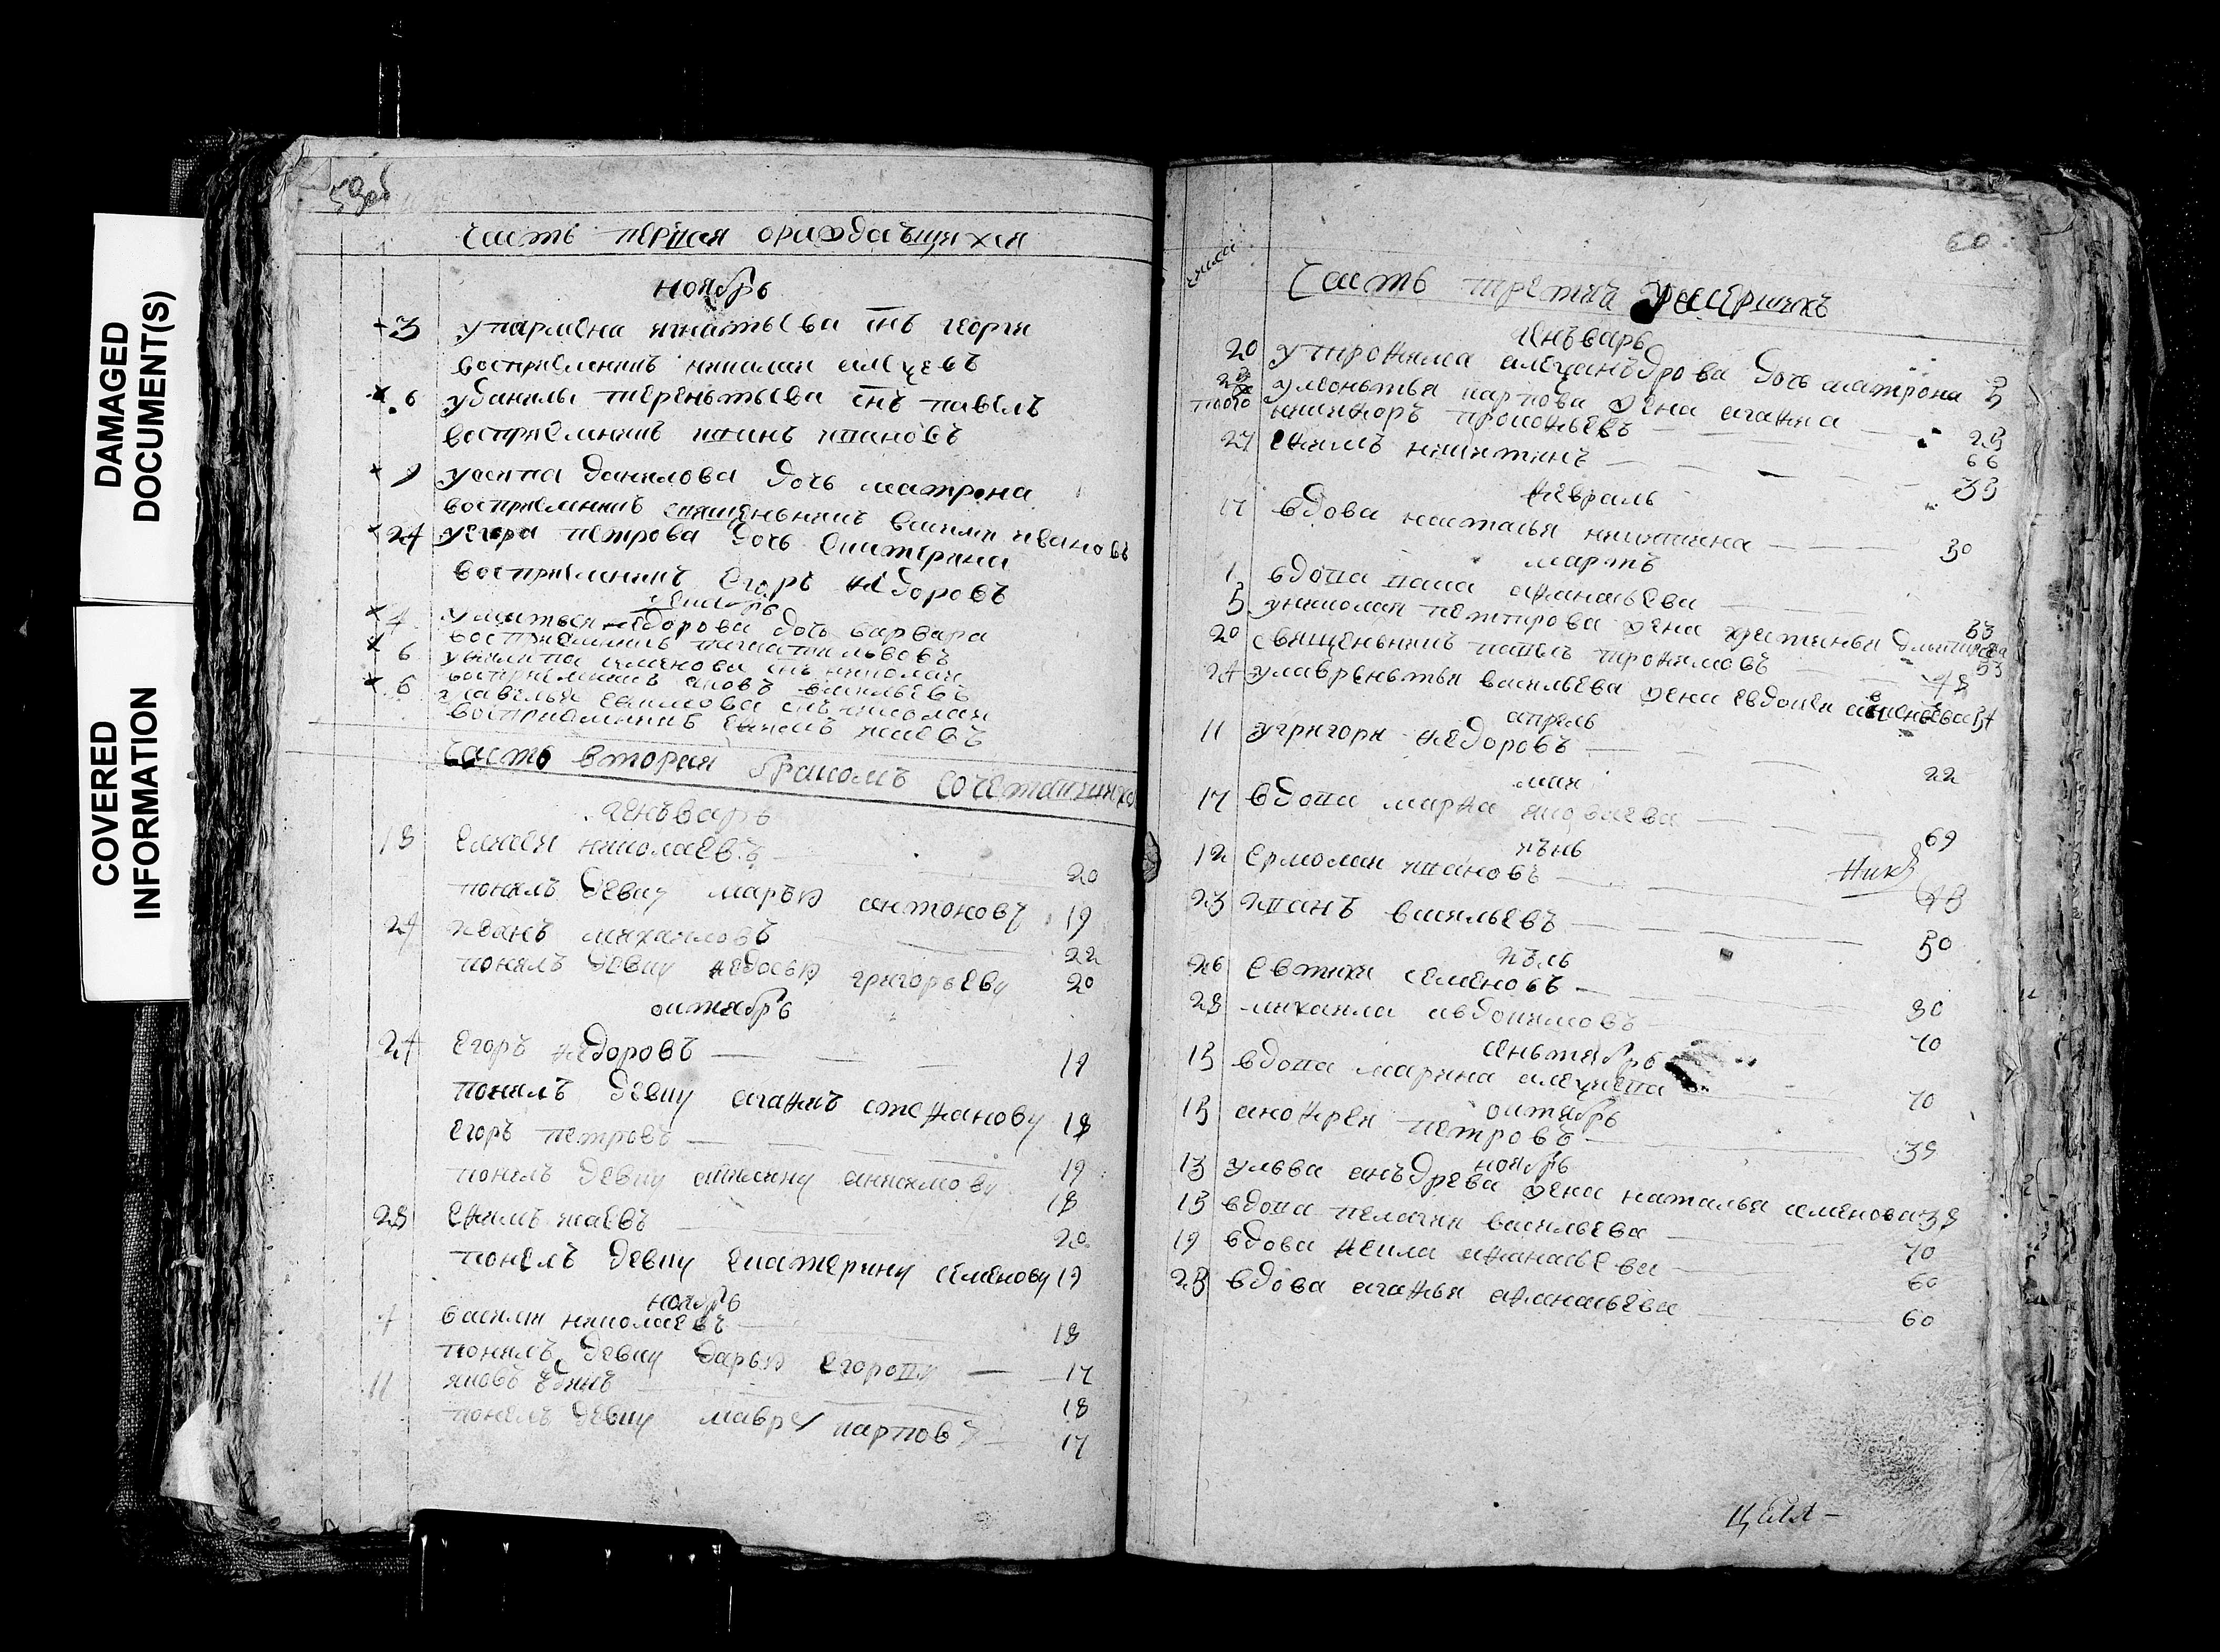 DAMAGED
DOCUMENT(S)
COVERED
INFORMATION
59об
часть первая ораждаъщихся
ноябрь
3 упармена игнатьева снъ георги
восприемникъ николаи алеѯевъ
6 уданилы терентьева снъ павелъ
восприемникъ иванъ ивановъ
9 уосипа данилова дочь матрона
восприемникъ священьникъ василии ивановъ
24 уегора петрова дочь екатерина
восприемникъ егоръ ѳедоровъ
декабрь
4 ѳедорова дочь варвара
восприемникъ
6 уѳилипа семенова снъ николаи
восприемникъ яковъ васильевъ
6 усавелья снъ николаи
восприемникъ еѳимъ
часть вторая бракомъ сочетавшихся
генъварь
18 елисеи николаевъ 20
понялъ девку марью антонову 19
29 иванъ михаиловъ 22
понялъ девку ѳедосью григорьеву 20
октябрь
24 егоръ ѳедоровъ 19
понялъ девку агаѳью стеѳанову 18
егоръ петровъ 19
понялъ девку акилину 18
28 еѳимъ 20
понялъ девку екатерину семенову 19
ноябрь
7 василии николаевъ 18
понялъ девку дарью егорову 17
11 яковъ 18
понялъ девку мавру карпову 17
60
числа
часть третия умершихъ
генъварь
20 утроѳима алеѯанъдрова дочь матрона 3
22 улеонътья карпова жена агаѳия 25
того никиѳоръ прокоѳьевъ 66
27 еѳимъ никитинъ 35
ѳевраль
17 вдова наталья никитина 30
мартъ
1 вдова аѳанасьева 53
5 униколаи петрова жена христинья 53
20 священьникъ павелъ троѳимовъ 48
24 улаврентья васильева жена евдокея
апрель
11 угригори ѳедоровъ 22
маи
17 вдова марѳа яковлева 69
иънь
12 ермолаи ивановъ
23 иванъ васильевъ 50
иъль
26 евтихи семеновъ 80
28 михаила авдокимовъ 70
сеньтябрь
15 вдова марина алеѯиева 70
октябрь
15 аноѳреи петровъ 39
ноябрь
13 ульва анъдрева жена наталья семенова 38
15 вдова пелагия васильева 70
19 вдова ѳекла аѳанасьева 60
25 вдова агаѳья аѳанасьева 60